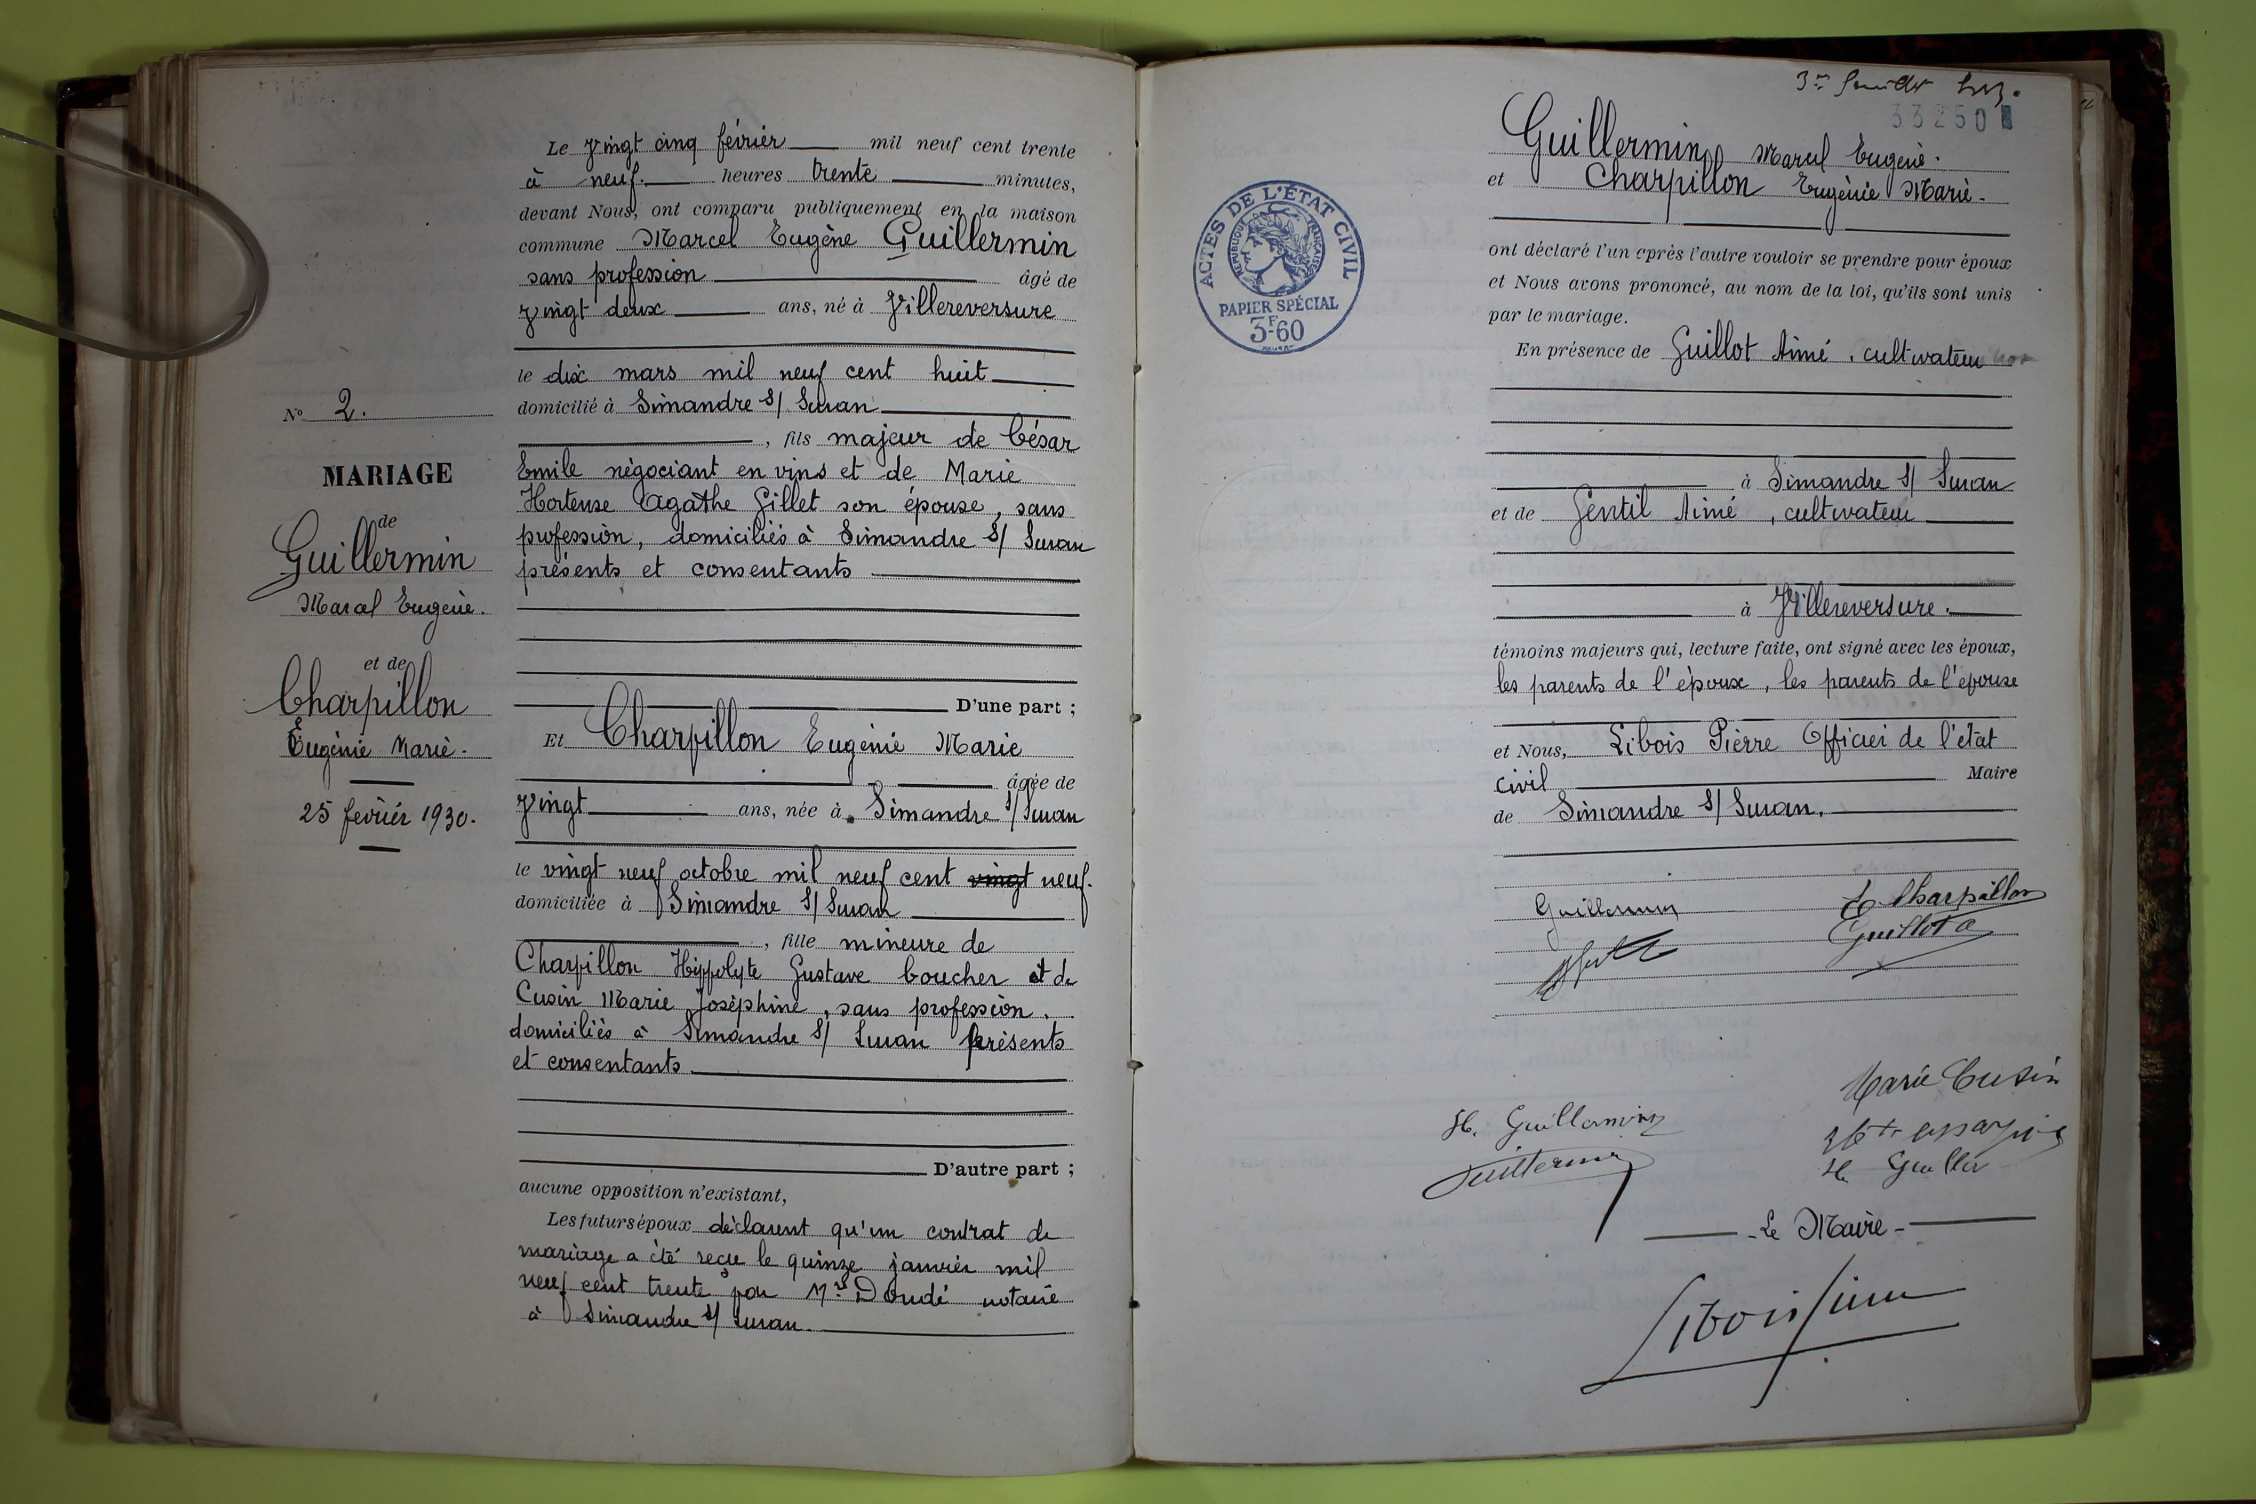 N° 2.
MARIAGE
de
Guillermin
Marcel Eugène.
et de
Charpillon
Eugénie Marie.
25 février 1930.
Le vingt cinq février mil neuf cent trente
à neuf heures trente minutes,
devant Nous, ont comparu publiquement en la maison
commune Marcel Eugène Guillermin
sans profession âgé de
vingt deux ans, né à Villereversure
le dix mars mil neuf cent huit
domicilié à Simandre s/ Suran
, fils majeur de César
Emile négociant en vins et de Marie
Hortense Agathe Gillet son épouse, sans
profession, domiciliés à Simandre s/ Suran
présents et consentants
D'une part ;
Et Charpillon Eugénie Marie
âgée de
vingt ans, née à Simandre s/ Suran
le vingt neuf octobre mil neuf cent vingt neuf.
domiciliée à Simandre s/ Suran
, fille mineure de
Charpillon Hippolyte Gustave boucher et de
Cusin Marie Joséphine, sans profession,
domiciliés à Simandre s/ Suran présents
et consentants
D'autre part ;
aucune opposition n'existant,
Les futurs époux déclarent qu'un contrat de
mariage a été reçu le quinze janvier mil
neuf cent trente par notaire
à Simandre s/ Suran.
ACTES DE L'ÉTAT CIVIL
RÉPUBLIQUE FRANÇAISE
PAPIER SPÉCIAL
3F-60
33250
Guillermin Marcel Eugène.
et Charpillon Eugénie Marie.
ont déclaré l'un après l'autre vouloir se prendre pour époux
et Nous avons prononcé, au nom de la loi, qu'ils sont unis
par le mariage.
En présence de Guillot Aimé, cultivateur
à Simandre s/ Suran
et de Gentil Aimé, cultivateur
à Villereversure.
témoins majeurs qui, lecture faite, ont signé avec les époux,
les parents de l'époux, les parents de l'épouse
et Nous, Libois Pierre Officier de l'état
civil Maire
de Simandre s/ Suran.
Guillermin E Charpillon
Guillot a
Marie Cusin
H. Guillermin
Guillermin
Le Maire
Libois Pierre